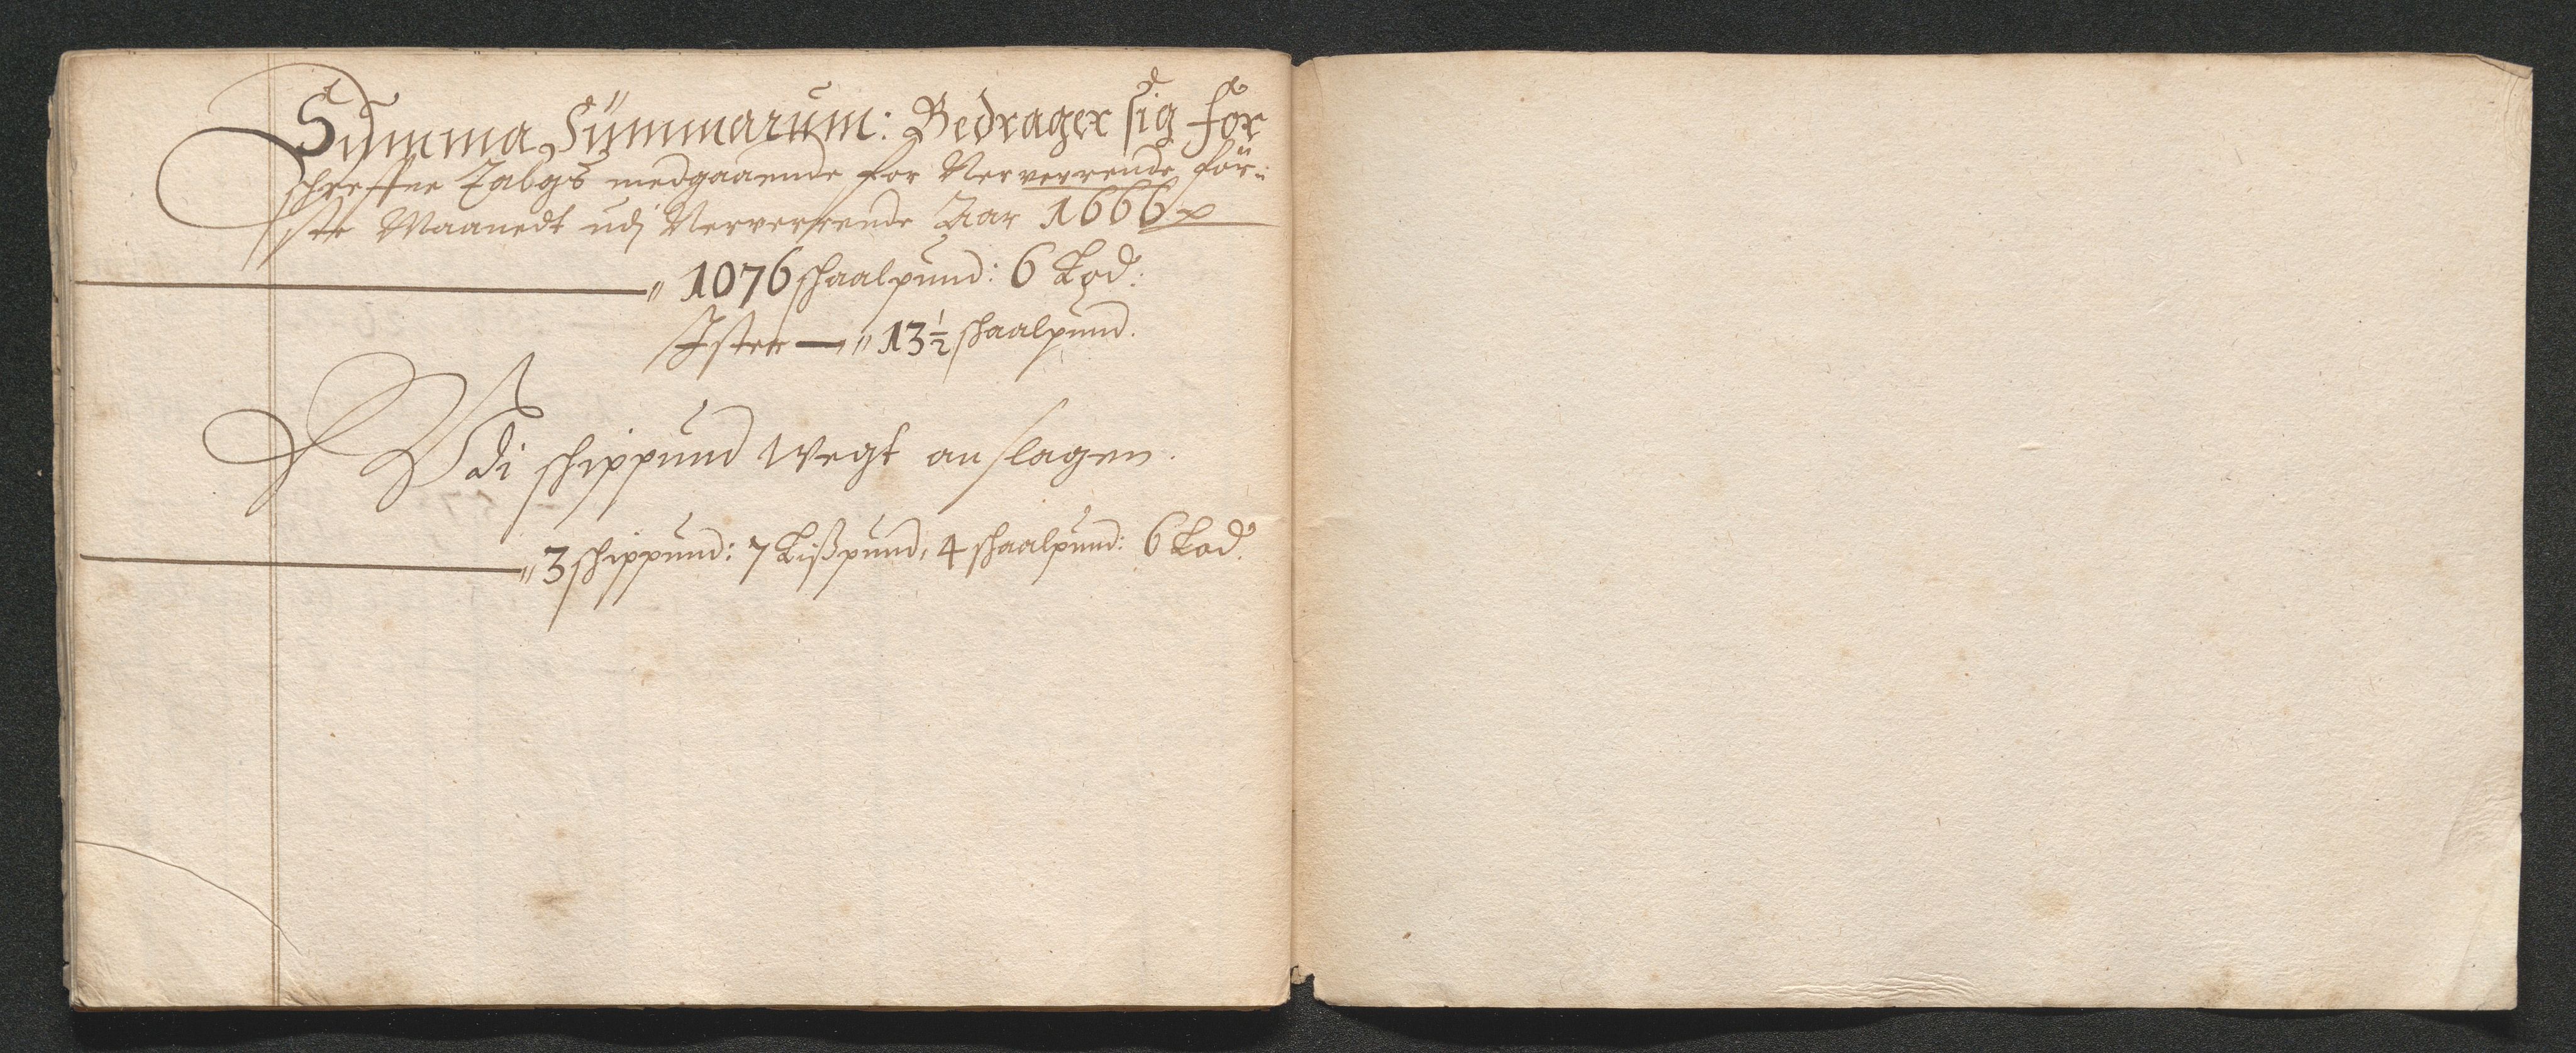 Summa Summarum: Bedrager sig for
schreffne Talgs medgaaende for Nerverrende för:
ste Maanedt udj Nerverrende Aar 1666
" 1076 schaalpund: 6 Lod.
Ister — " 13½ schaalpund.
Udi schippund Wegt anslagen.
" 3 schippund: 7 Lißpund, 4 schaalpund: 6 Lod.